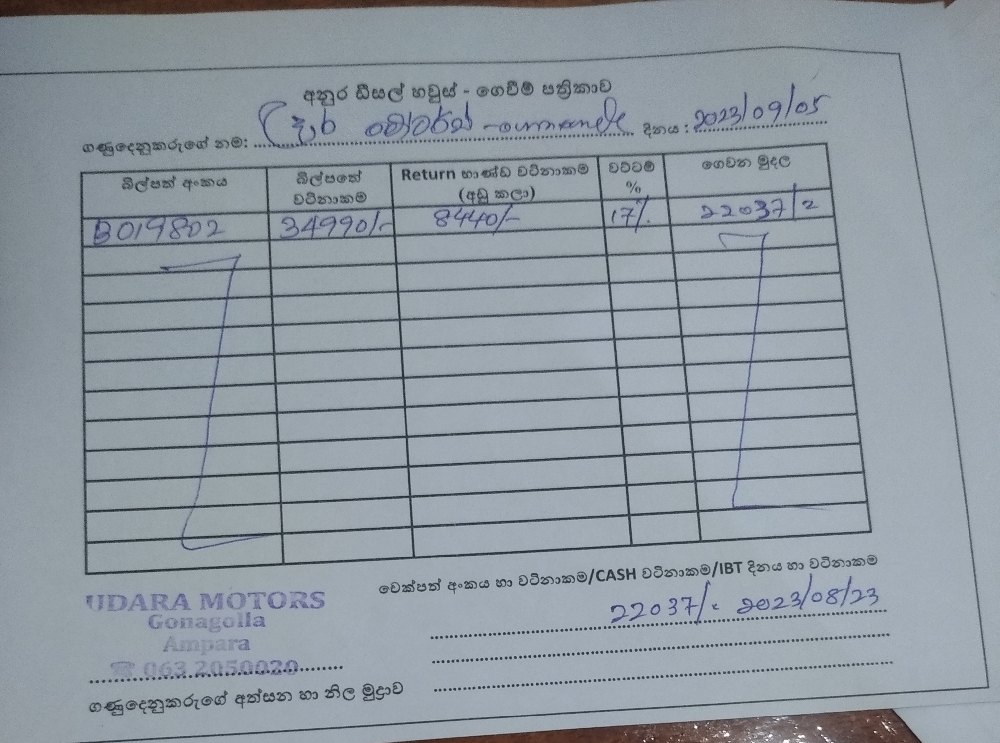 අනුර ඩීසල් හවුස් - ගෙවීම් පත්‍රිකාව
ගණුදෙනුකරුගේ නම: මෝටර්ස් දිනය : 2023/09/05
බිල්පත් අංකය බිල්පතේ වටිනාකම Return භාණ්ඩ වටිනාකම (අඩු කලා) වට්ටම් % ගෙවන මුදල
B019802 34990/- 8440/- 17%
චෙක්පත් අංකය හා වටිනාකම/CASH වටිනාකම/IBT දිනය හා වටිනාකම
22037/- 2023/08/23
UDARA MOTORS
Gonagolla
Ampara
☎ 063 2050020
ගණුදෙනුකරුගේ අත්සන හා නිල මුද්‍රාව